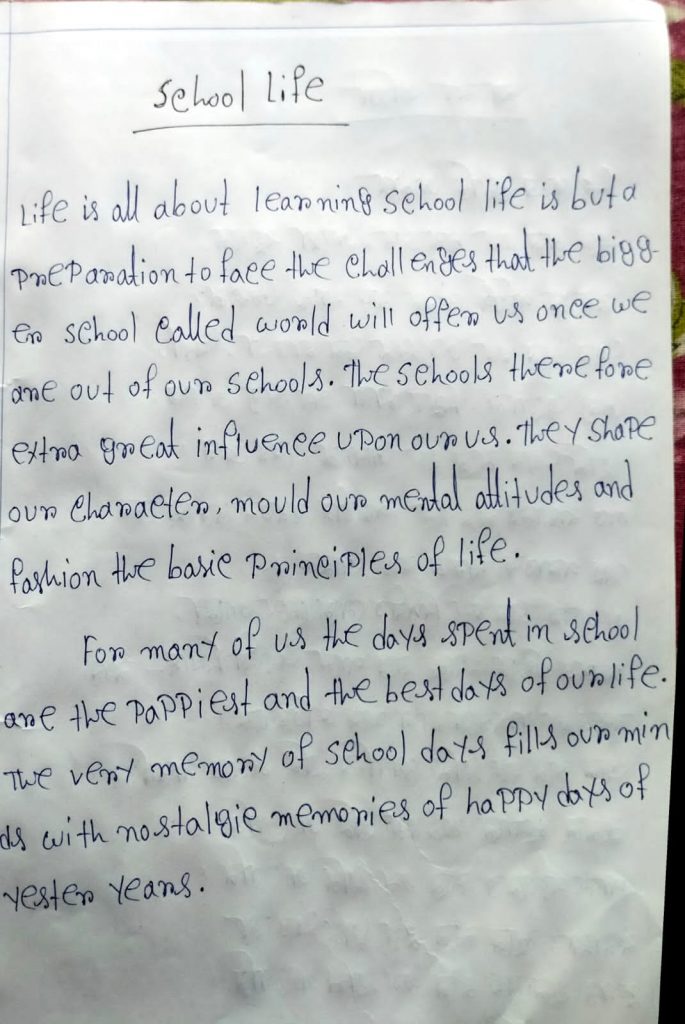 School Life
Life is all about learning school life is but a
preparation to face the challenges that the bigg-
er school called world will offer us once we
are out of our schools. The schools therefore
extra great influence upon our us. They shape
our character, mould our mental attitudes and
fashion the basic principles of life.
For many of us the days spent in school
are the pappiest and the best days of our life.
The very memory of school days fills our min
ds with nostalgic memories of happy days of
yester years.